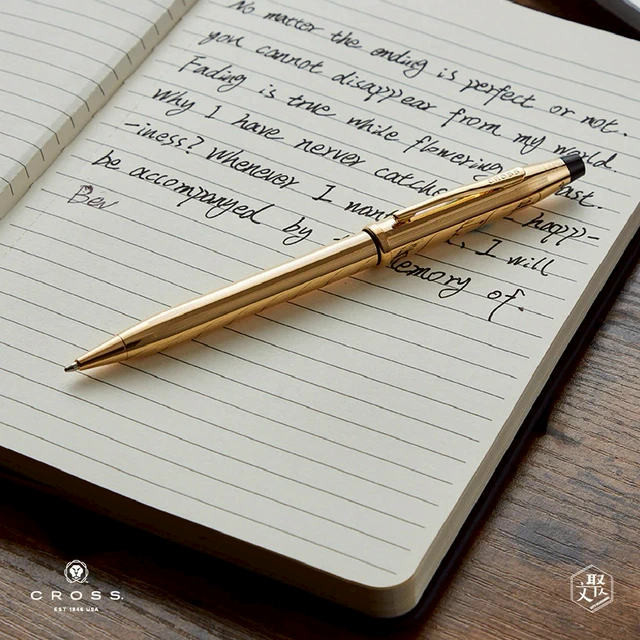 No matter the ending is perfect or not.
you cannot disappear from my world.
Fading is true while flowering past.
Why I have nerver catche happ-
-iness? Whenever I want , I will
be accompanyed by emory of.
Bev
CROSS
CROSS
EST 1846 USA